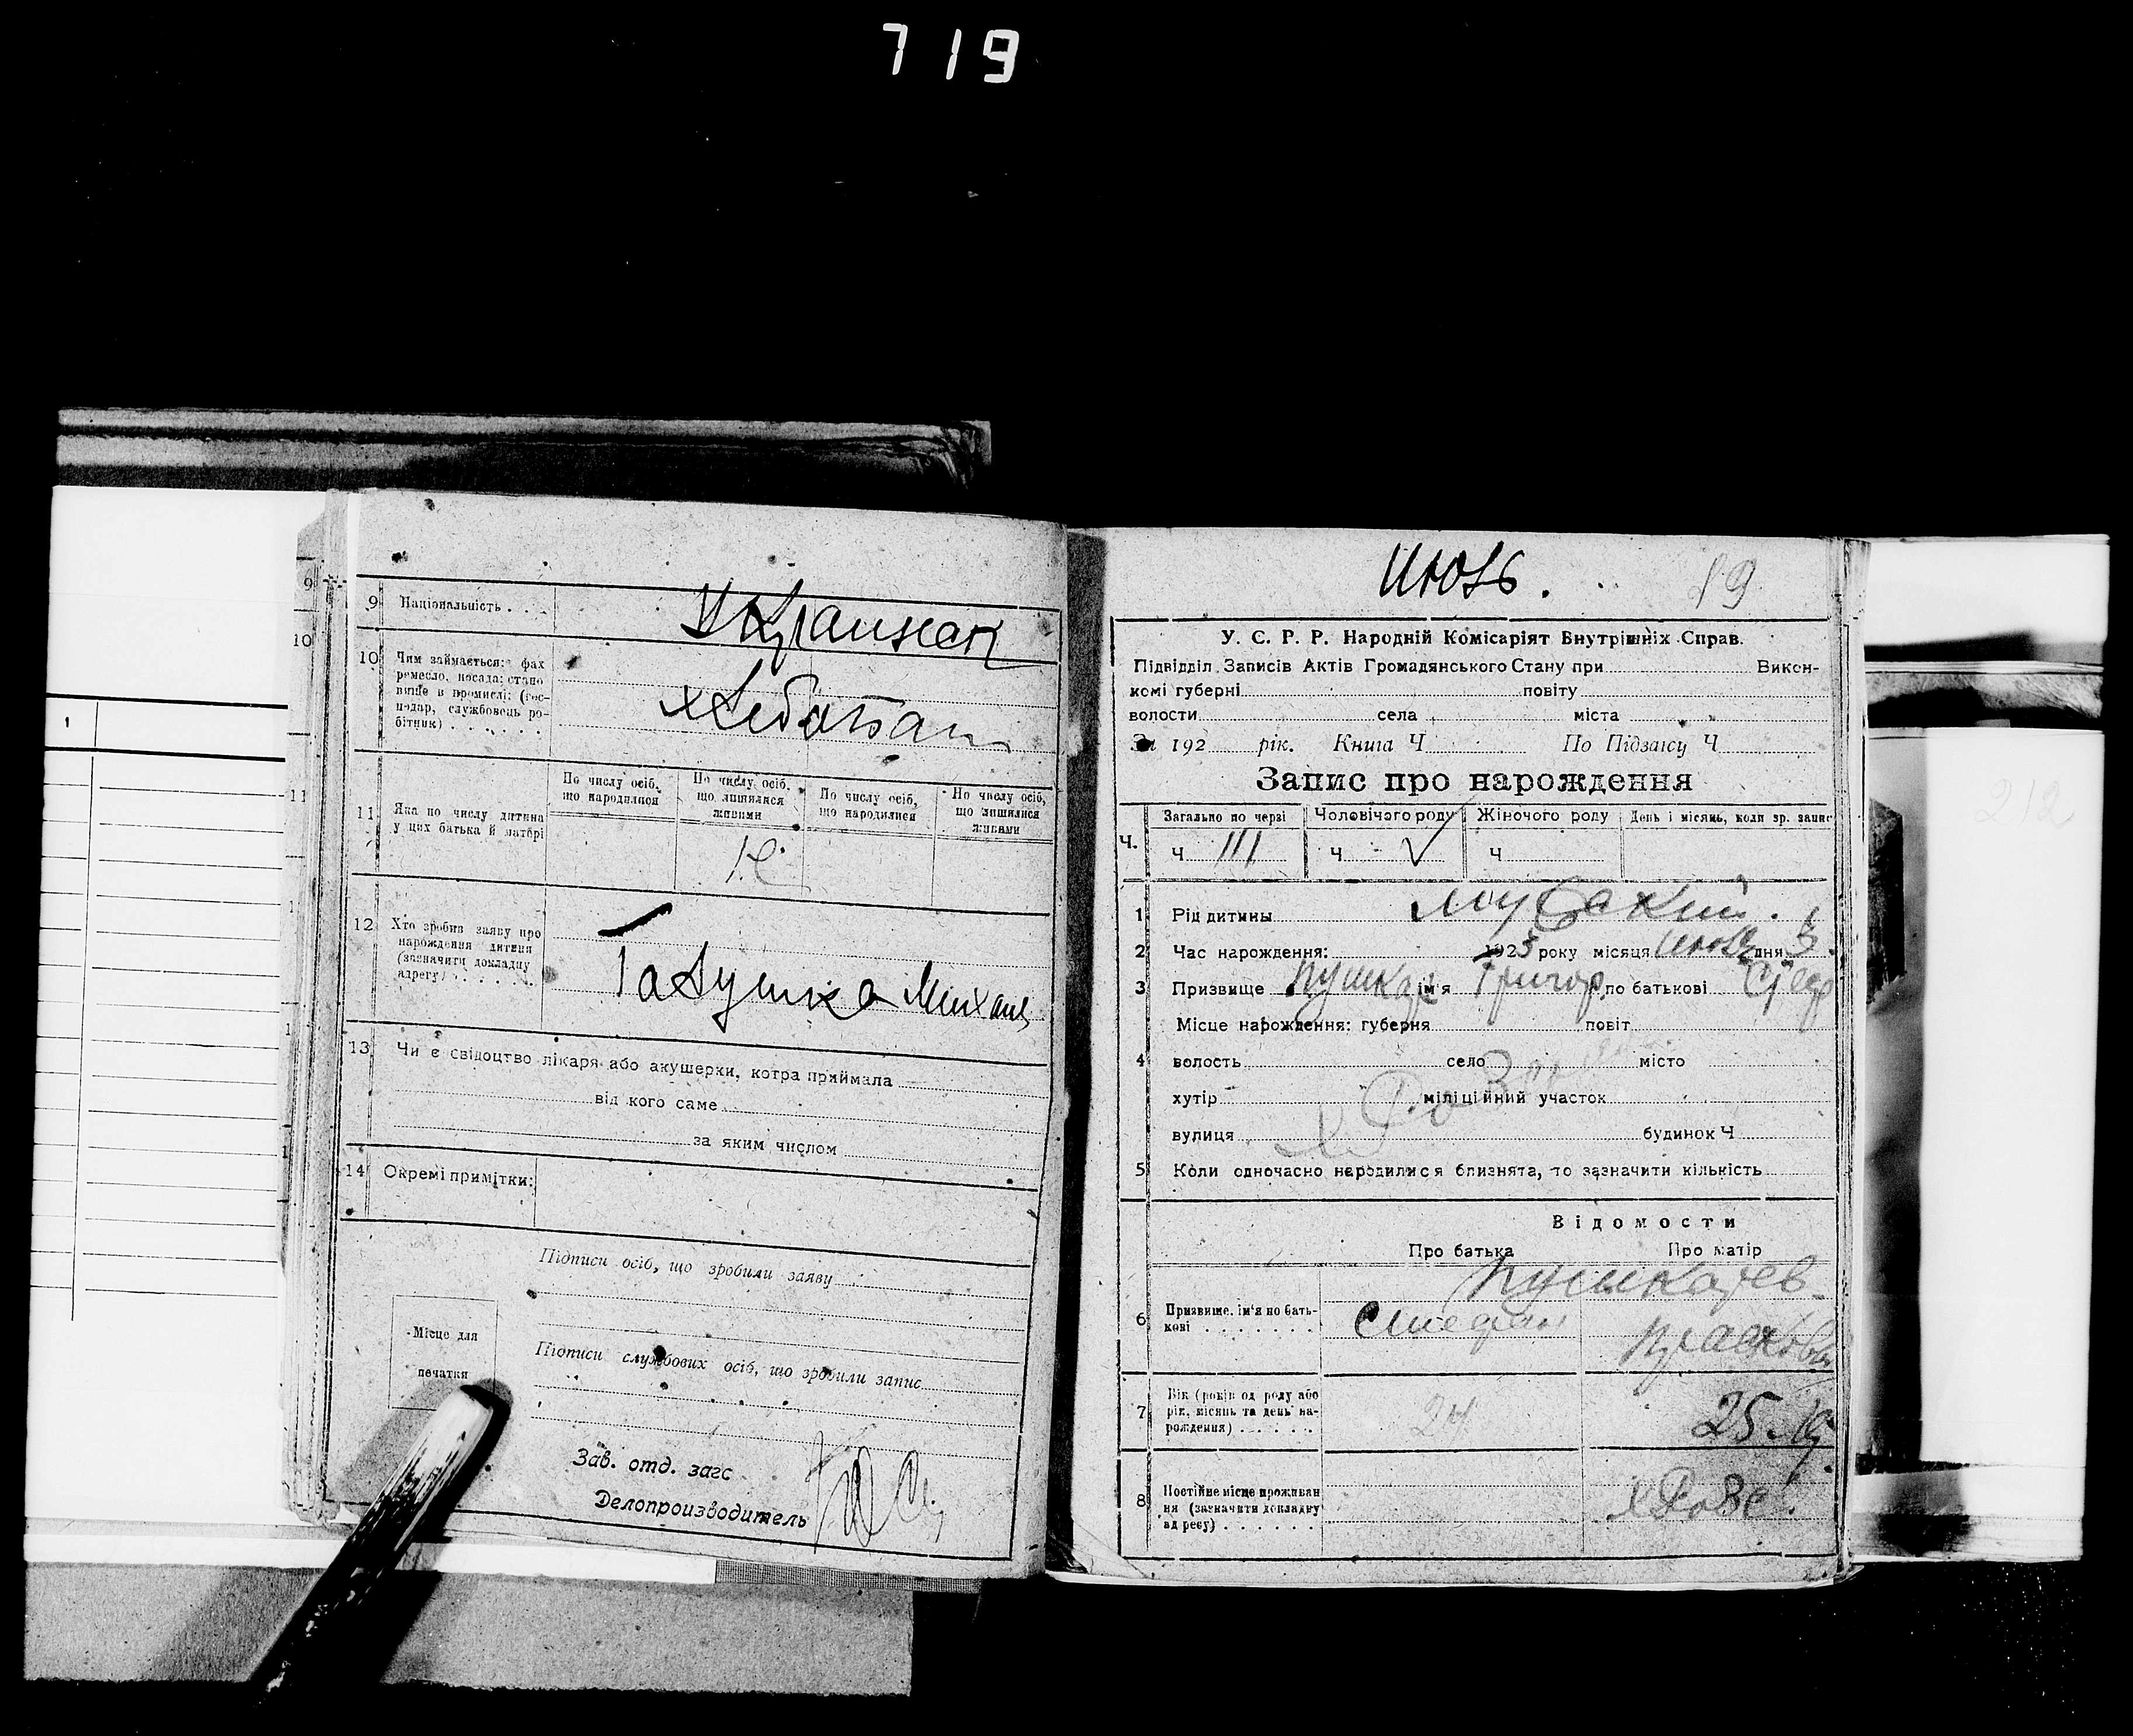 719
9 Національність . . . Украинец
10 Чим займається: фах
ремесло, посада; стано
вище в промислі: (гос-
подар, службовець ро-
бітник) . . . . . .
11 Яка по числу дитина
у цих батька й матері
По числу осіб,
що народилися
По числу осіб,
що лишилися
живими
По числу осіб,
що народилися
По числу осіб,
що лишилися
живими
12 Хто зробив заяву про
народження дитини
(зазначити докладну
адресу) . . . . . .
13 Чи є свідоцтво лікаря або акушерки, котра приймала
від кого саме
за яким числом
14 Окремі примітки:
Підписи осіб, що зробили заяву
Місце для
печатки
Підписи службових осіб, що зробили запис
Зав. отд. загс
Делопроизводитель
9
10
11
1
Июль. 19
У. С. Р. Р. Народній Комісаріят Внутрішніх Справ.
Підвідділ Записів Актів Громадянського Стану при Викон-
комі губерні повіту
волости села міста
За 192 рік. Книга Ч По Підзагсу Ч
Запис про нарождення
Ч. Загально по черзі Чоловічого роду Жіночого роду День і місяць, коли зр. запис
Ч 111 Ч V Ч
1 Рід дитины мужский.
2 Час нарождення: 1923 року місяця июля дня 3
3 Призвище Пушкар ім'я Григор по батькові
Місце нарождення: губерня повіт
4 волость село місто
хутір міліційний участок
вулиця будинок Ч
5 Коли одночасно народилися близнята, то зазначити кількість
Відомости
Про батька Про матір
6 Призвище, ім'я по бать-
кові . . . . . . .
Пушкарев
Стефан
Прасковья
7 Вік (років од роду або
рік, місяць та день на-
рождення) . . . . .
24 25
8 Постійне місце проживан
ня (зазначити докладну
адресу) . . . . . .
212